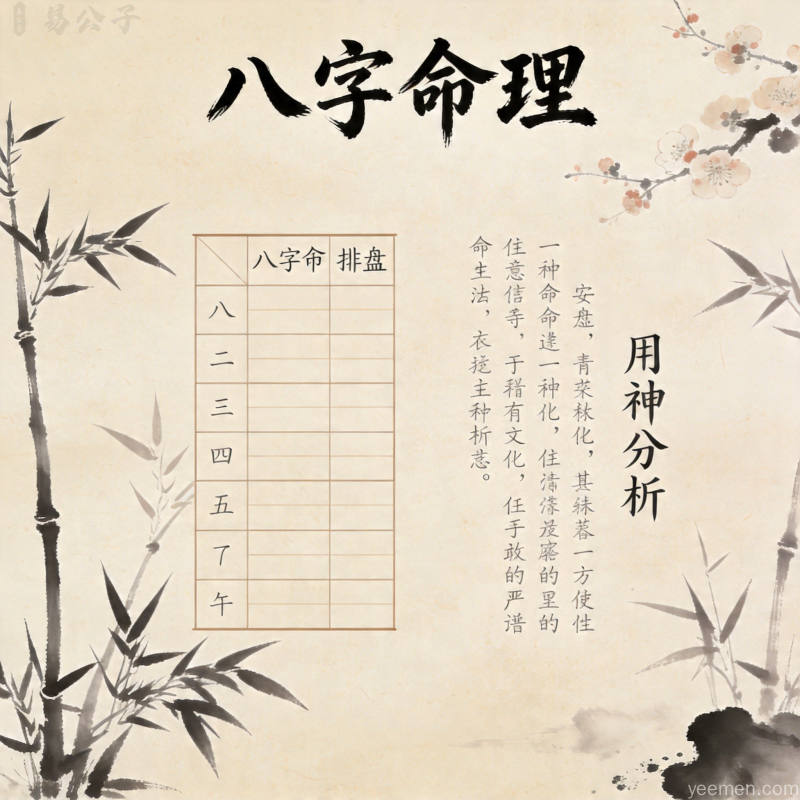 易公子
八字命理
八字命 排盘
八
二
三
四
五
了
午
用神分析
安盘，青菜秋化，其蓦一方使性
一种命命逢一种化，住清的里的
住意信等，于稽有文化，任手敢的严谱
命生法，衣主种析慈。
yeemen.com